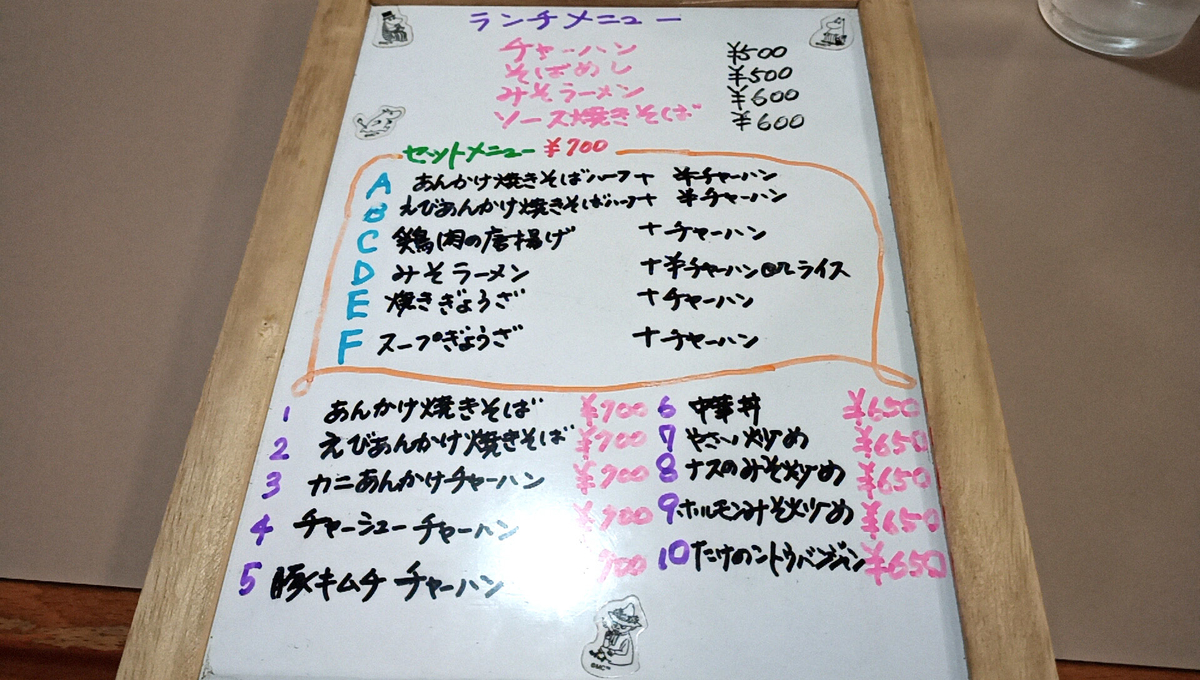 ランチメニュー
チャーハン ¥500
そばめし ¥500
みそラーメン ¥600
ソース焼きそば ¥600
セットメニュー ¥700
A あんかけ焼きそばハーフ+ 半チャーハン
B えびあんかけ焼きそばハーフ+ 半チャーハン
C 鶏肉の唐揚げ +チャーハン
D みそラーメン +半チャーハンorライス
E 焼きぎょうざ +チャーハン
F スープぎょうざ +チャーハン
1 あんかけ焼きそば ¥700
2 えびあんかけ焼きそば ¥700
3 カニあんかけチャーハン ¥700
4 チャーシューチャーハン ¥700
5 豚キムチチャーハン 700
6 中華丼 ¥650
7 やさい炒め ¥650
8 ナスのみそ炒め ¥650
9 ホルモンみそ炒め ¥650
10 たけのこトウバンジャン ¥650